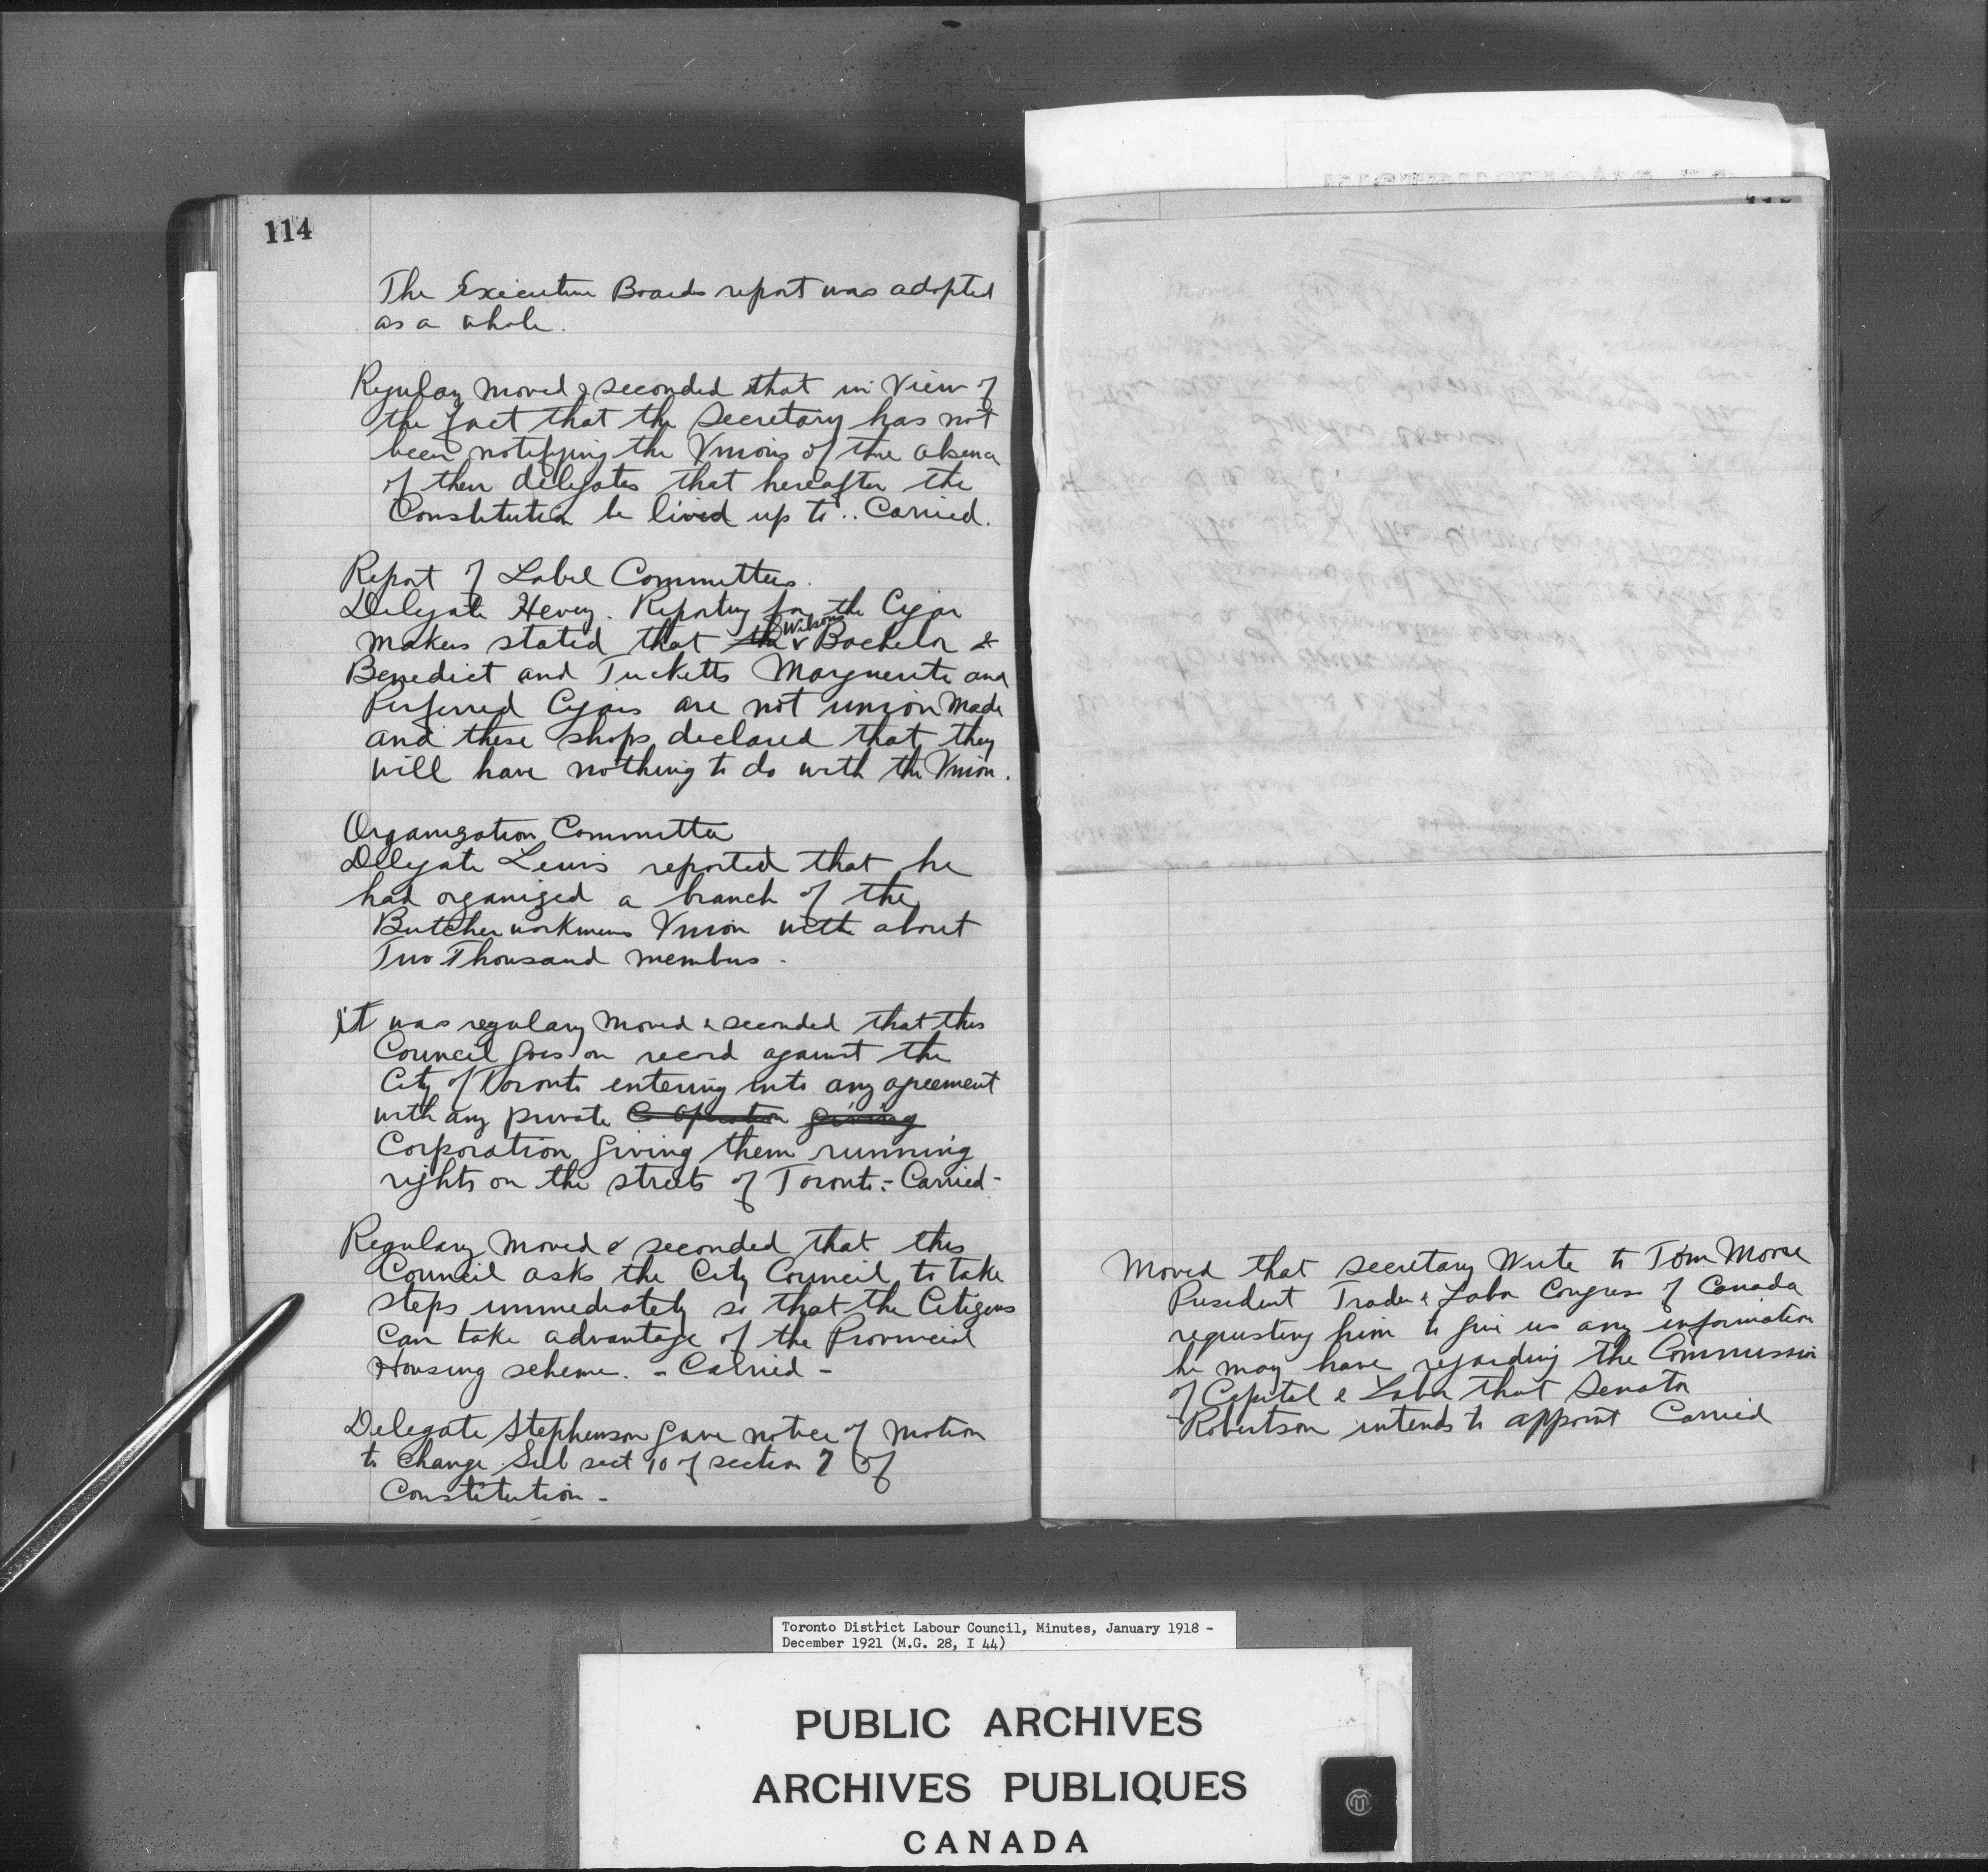 114
The Executive Boards report was adopted
as a whole.
Regulary moved & seconded that in View of
the fact that the Secretary has not
been notifying the Unions of the absence
of their delegates that hereafter the
Constitution be lived up to .. Carried.
Report of Label Committees.
Delegate Hevey. Reporting for the Cigar
makers stated that the Wilsons Bachelor &
Benedict and Tucketts Marguerite and
Perferred Cigars are not union Made
and these shops declared that they
will have nothing to do with the Union.
Organization Committee
Delegate Lewis reported that he
had organized a branch of the
Butcher workmens Union with about
Two Thousand members -
it was regulary moved & seconded that this
Council goes on record against the
City of Toronto entering into any agreement
with any private Co operation giving
Corporation giving them running
rights on the streets of Toronto - Carried -
Regulary Moved & seconded that this
Council asks the City Council to take
steps immediately so that the Citizens
can take advantage of the Provincial
Housing scheme. - Carried -
Delegate Stephenson gave notice of Motion
to change Sub sect 10 of section 7 of
Constitution -
Moved that secretary Write to Tom Moore
President Trades & Labor Congress of Canada
requesting him to give us any information
he may have regarding the Commission
of Capital & Labor that Senator
Robertson intends to appoint Carried
Toronto District Labour Council, Minutes, January 1918 -
December 1921 (M.G. 28, I 44)
PUBLIC ARCHIVES
ARCHIVES PUBLIQUES
CANADA